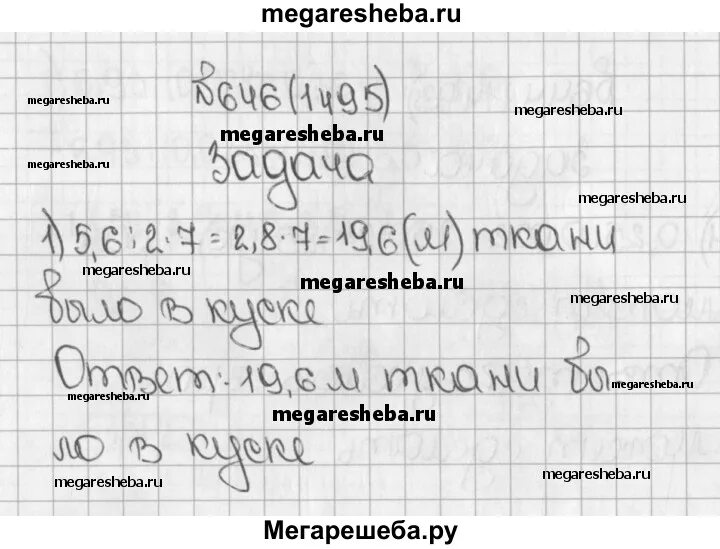 megaresheba.ru
№646(1495)
megaresheba.ru
megaresheba.ru
megaresheba.ru
megaresheba.ru
Задача
megaresheba.ru
1) 5,6:2·7=2,8·7=19,6(м) ткани
megaresheba.ru
megaresheba.ru
было в куске
megaresheba.ru
Ответ: 19,6 м ткани бы
megaresheba.ru
megaresheba.ru
ло в куске
megaresheba.ru
megaresheba.ru
Мегарешеба.ру